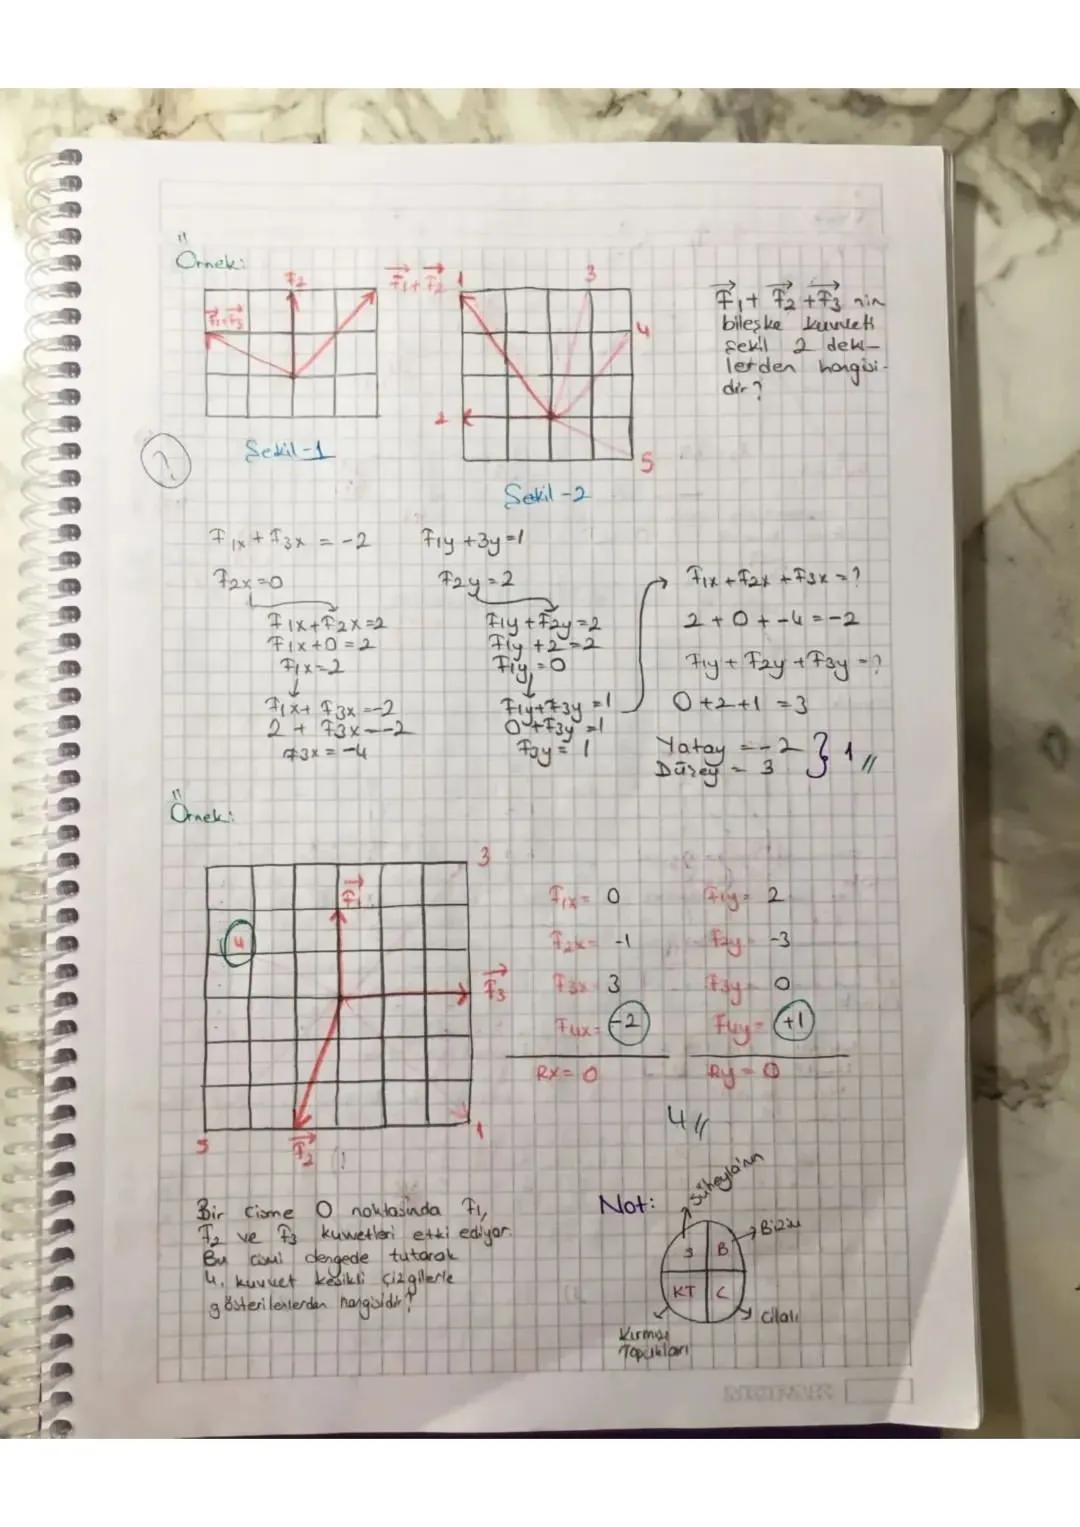 Örnek:
F₂
F₁+F₂
F₁+F₃
1
3
4
2
5
Şekil-1
Şekil-2
F₁+F₂+F₃ nin
bileşke kuvveti
şekil 2 deki-
lerden hangisi-
dir?
?
F₁x+F₃x = -2
F₁y+3y=1
F₂x=0
F₂y=2
F₁x+F₂x=2
F₁x+0=2
F₁x=2
F₁x+F₃x=-2
2+F₃x=-2
F₃x=-4
F₁y+F₂y=2
F₁y+2=2
F₁y=0
F₁y+F₃y=1
0+F₃y=1
F₃y=1
F₁x+F₂x+F₃x=?
2+0+-4=-2
F₁y+F₂y+F₃y=?
0+2+1=3
Yatay=-2
Düşey=3 } 1//
Örnek:
3
F₁
4
F₃
5
F₂
1
F₁x= 0
F₁y= 2
F₂x= -1
F₂y= -3
F₃x= 3
F₃y= 0
F₄x= -2
F₄y= +1
Rx=0
Ry=0
4//
Bir cisme O noktasında F₁,
F₂ ve F₃ kuvvetleri etki ediyor.
Bu cismi dengede tutarak
4. kuvvet kesikli çizgilerle
gösterilenlerden hangisidir?
Not:
Süheyla'nın
Bizim
S B
KT C
Cilalı
Kırmızı
Topukları